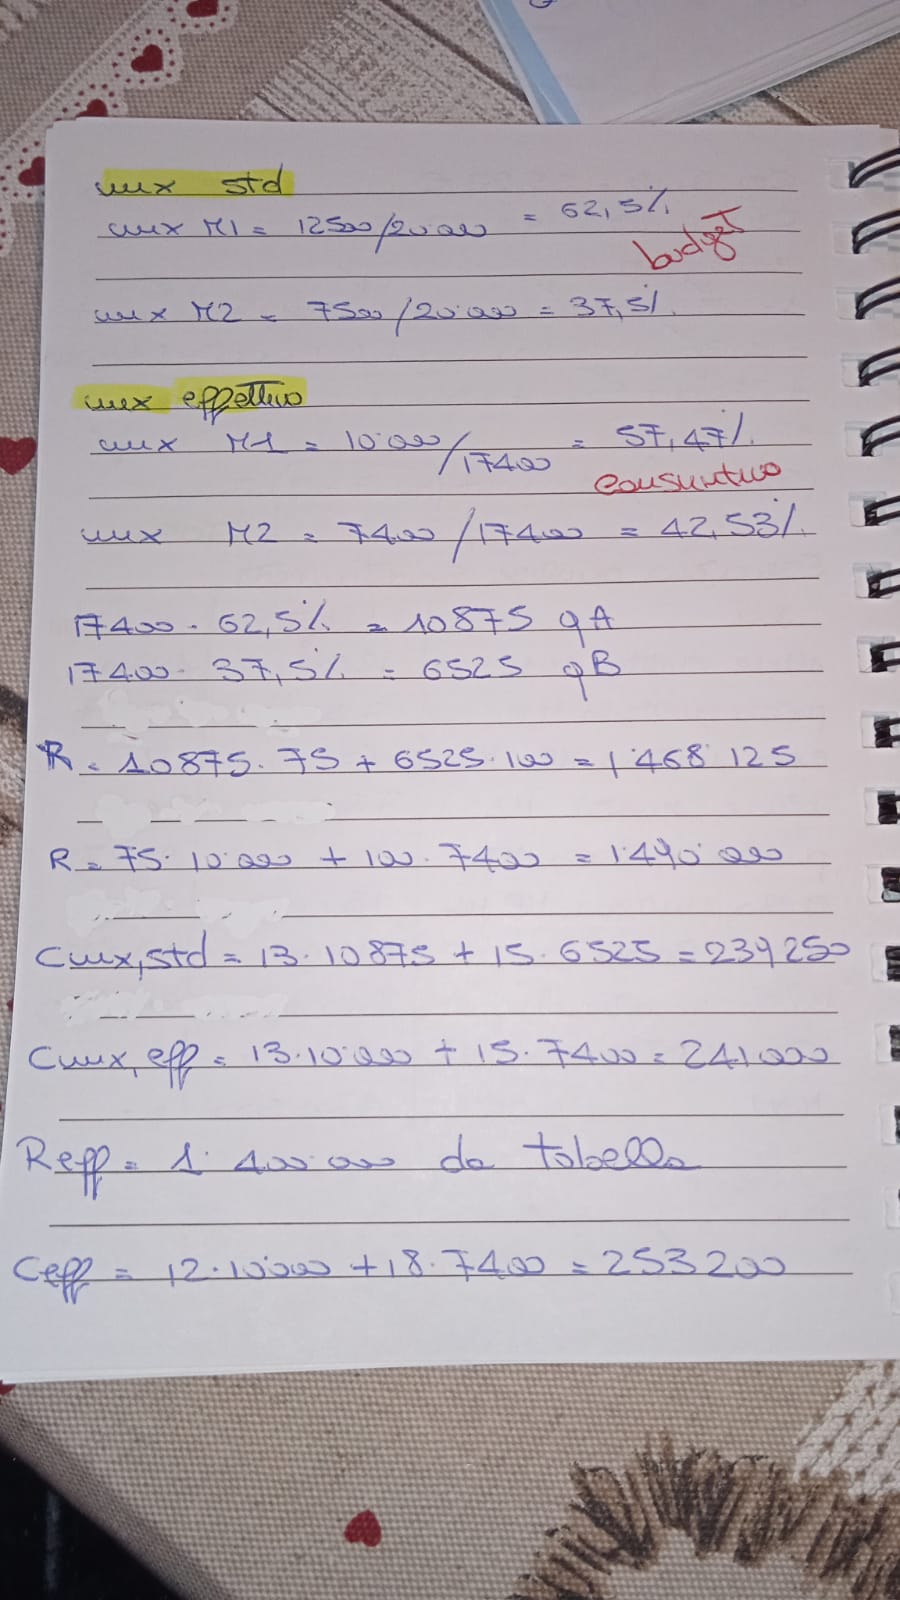 mix std
mix M1 = 12500/20'000 = 62,5%
budget
mix M2 = 7500/20'000 = 37,5%
mix effettivo
mix M1 = 10'000/17400 = 57,47%
consuntivo
mix M2 = 7400/17400 = 42,53%
17400 · 62,5% = 10875 qA
17400 · 37,5% = 6525 qB
R = 10875 · 75 + 6525 · 100 = 1'468'125
R = 75 · 10'000 + 100 · 7400 = 1'490'000
Cmix,std = 13 · 10875 + 15 · 6525 = 239250
Cmix,eff = 13 · 10'000 + 15 · 7400 = 241000
Reff = 1'400'000 da tabella
Ceff = 12 · 10'000 + 18 · 7400 = 253200